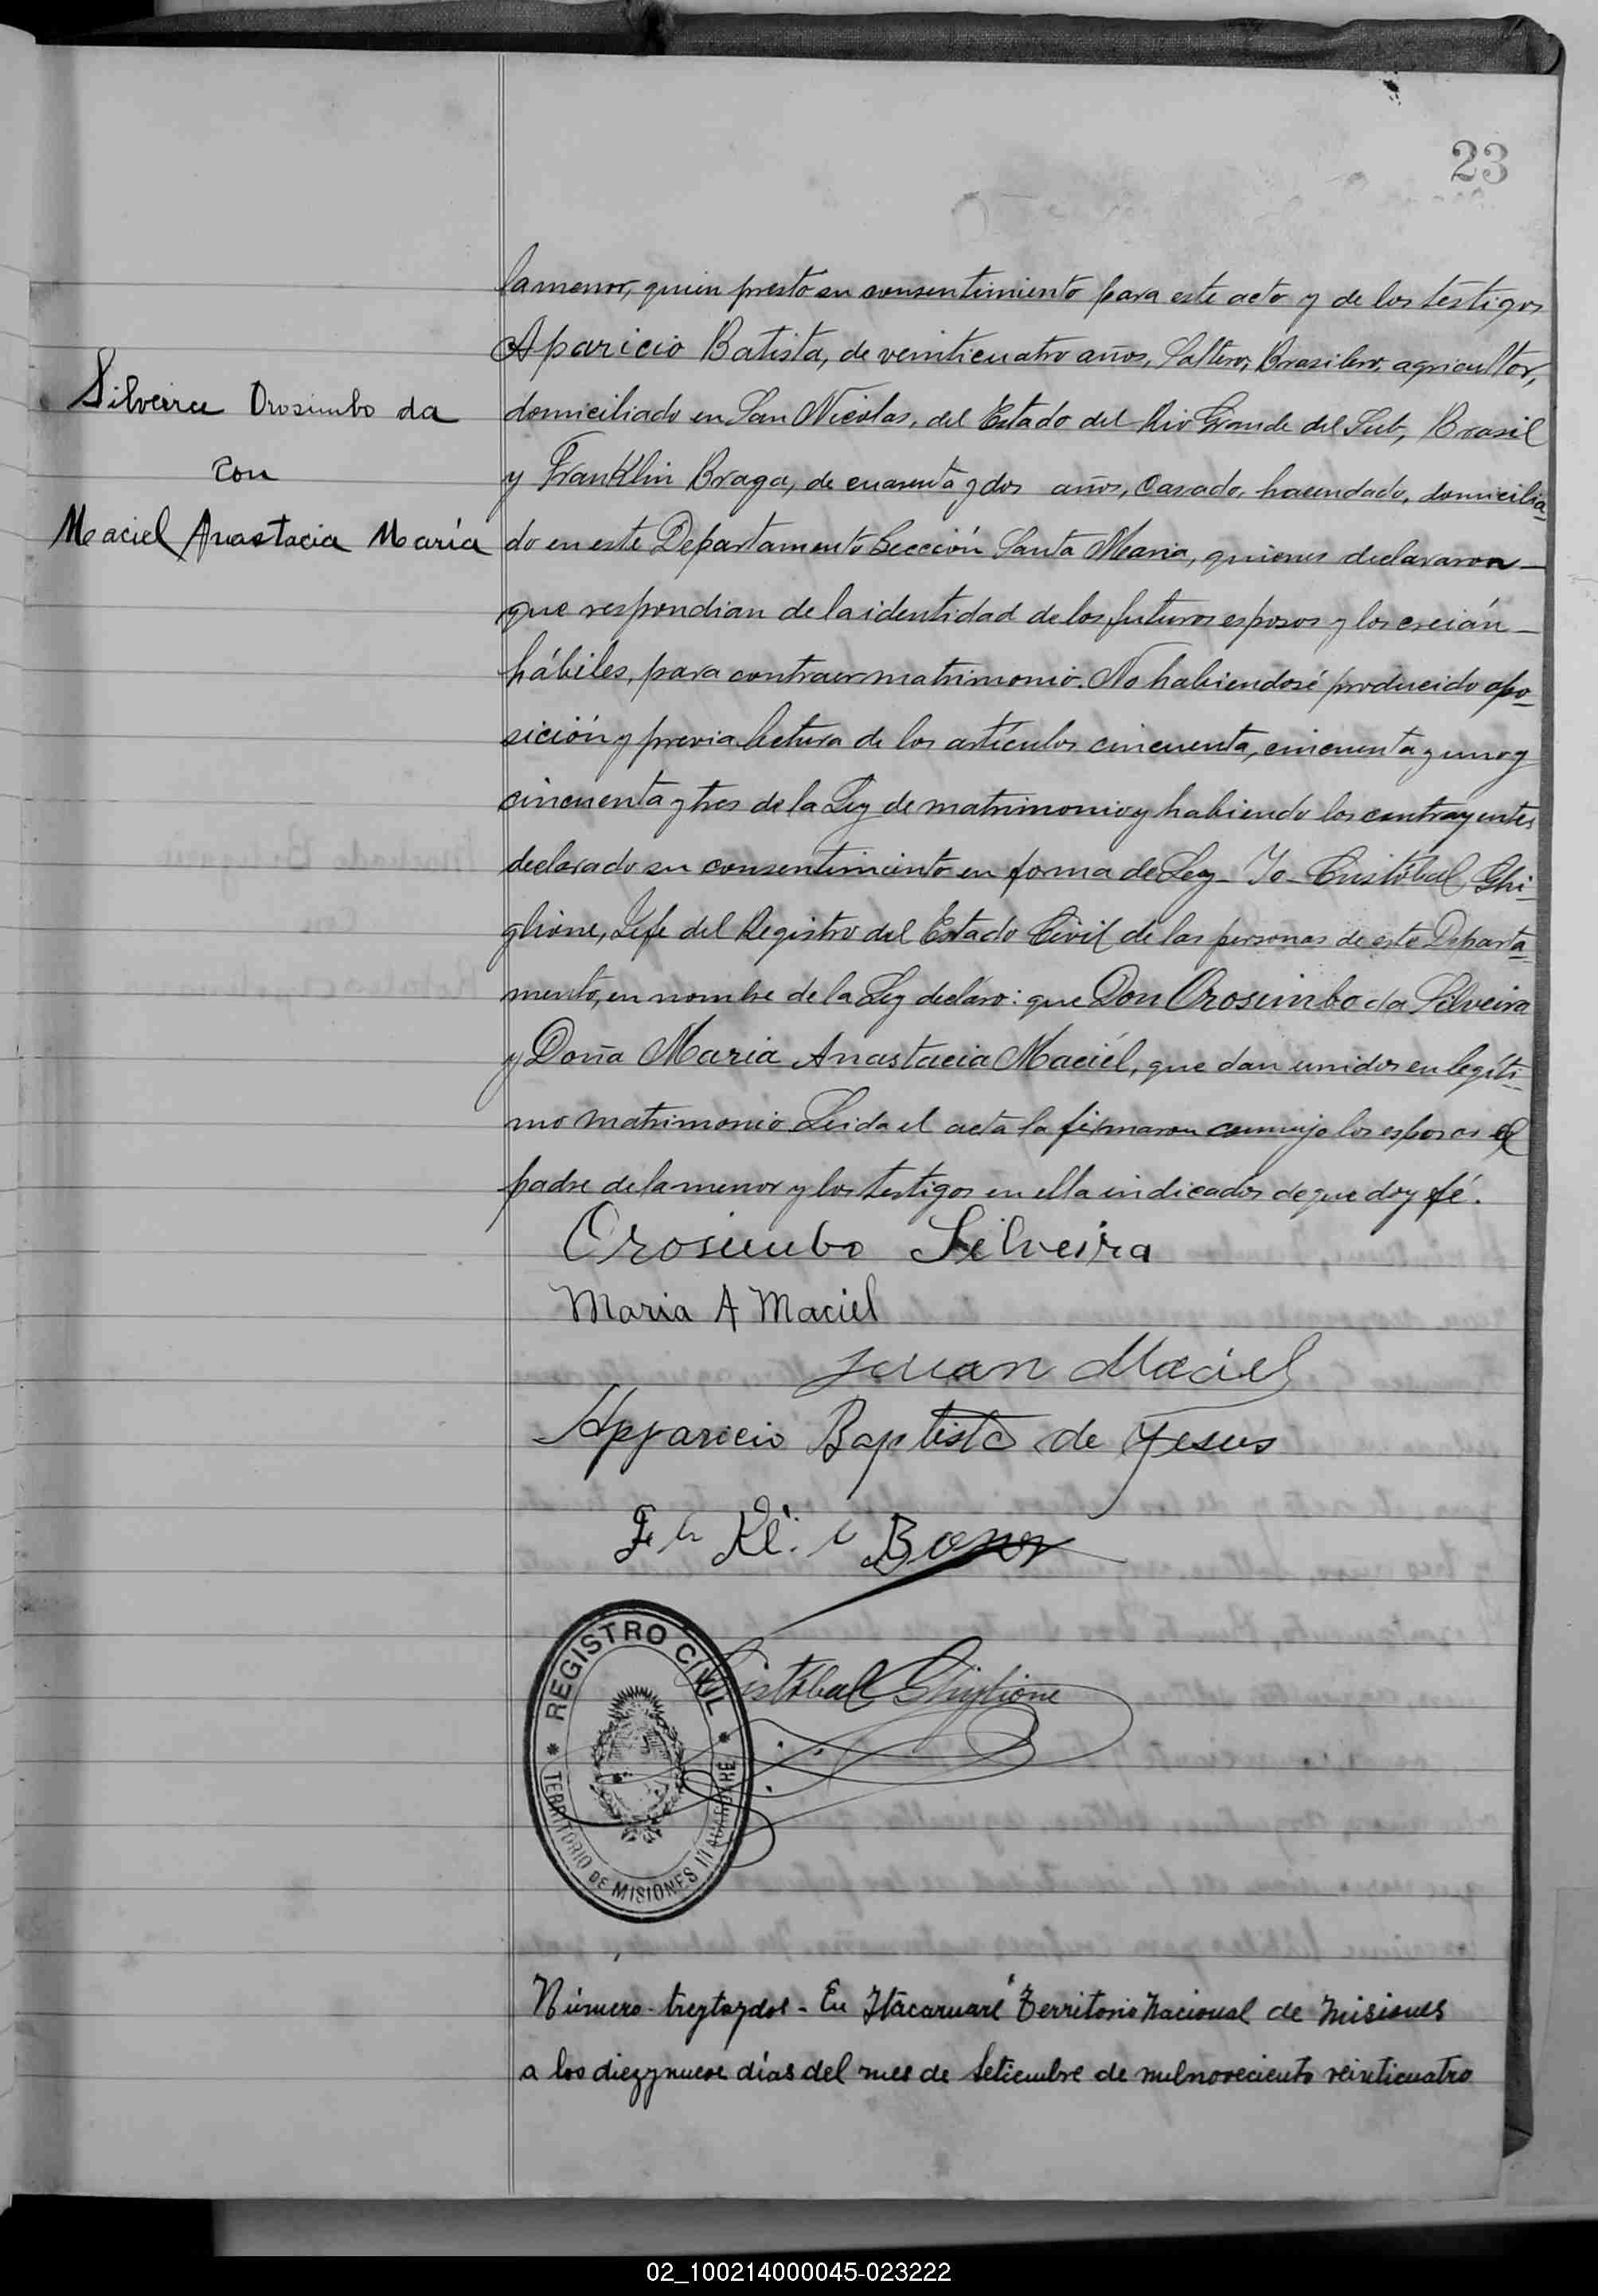 23
la menor, quien prestó su consentimiento para este acto y de los testigos
Aparicio Batista, de veinticuatro años, Soltero, Brasilero, agricultor,
Silveira Orosimbo da
con
Maciel Anastacia María
domiciliado en San Nicolas, del Estado del Rio Grande del Sut, Brasil
y Franklin Braga, de cuarenta y dos años, Casado, hacendado, domicilia-
do en este Departamento Sección Santa Maria, quienes declararon-
que respondian de la identidad de los futuros esposos y los creián-
hábiles, para contraer matrimonio. No habiendosé producido opo-
sición y previa lectura de los artículos cincuenta, cincuenta y uno y
cincuenta y tres de la Ley de matrimonio y habiendo los contrayentes
declarado su consentimiento en forma de Ley- Yo- Cristóbal Ghi-
glione, Jefe del Registro del Estado Civil de las personas de este Departa-
mento, en nombre de la Ley declaro: que Don Orosimbo da Silveira
y Doña Maria Anastacia Maciél, que dan unidos en legíti-
mo matrimonio Leida el acta la firmaron conmigo los esposos el
padre de la menor y los testigos en ella indicados de que doy fé.
Orosimbo Silveira
Maria A Maciel
Juan Maciel
Apparicio Baptista de Jesus
Cristóbal Ghiglione
REGISTRO CIVIL
TERRITORIO DE MISIONES
Número- treytaydos- En Itacaruaré Territorio Nacional de Misiones
a los diezynueve días del mes de Setiembre de milnoveciento veinticuatro
02_100214000045-023222